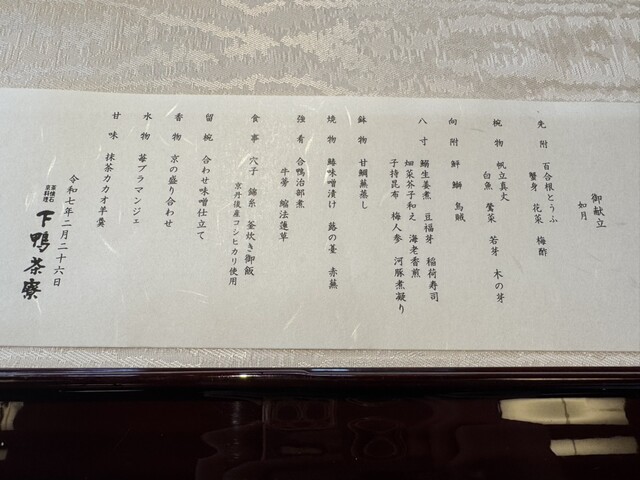 御献立
如月
先附 百合根とうふ
蟹身 花菜 梅酢
椀物 帆立真火
白魚 鶯菜 若芽 木の芽
向附 鮮 鰤 烏賊
八寸 鰯生姜煮 豆福芽 稲荷寿司
畑菜芥子和え 海老香煎
子持昆布 梅人参 河豚煮凝り
鉢物 甘鯛蕪蒸し
焼物 鰆味噌漬け 蕗の薹 赤蕪
強肴 合鴨治部煮
牛蒡 縮法蓮草
食事 穴子 錦糸 釜炊き御飯
京丹後産コシヒカリ使用
留椀 合わせ味噌仕立て
香物 京の盛り合わせ
水物 苺ブラマンジェ
甘味 抹茶カカオ羊羹
令和七年二月二十六日
茶懐石
京料理
下鴨茶寮